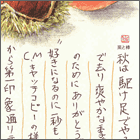 栗と椿
秋は駆け足でや
で去り爽やかな季
のためにありがとう
好きになるのに一秒も
CMキャッチコピーの様
から第一印象通り